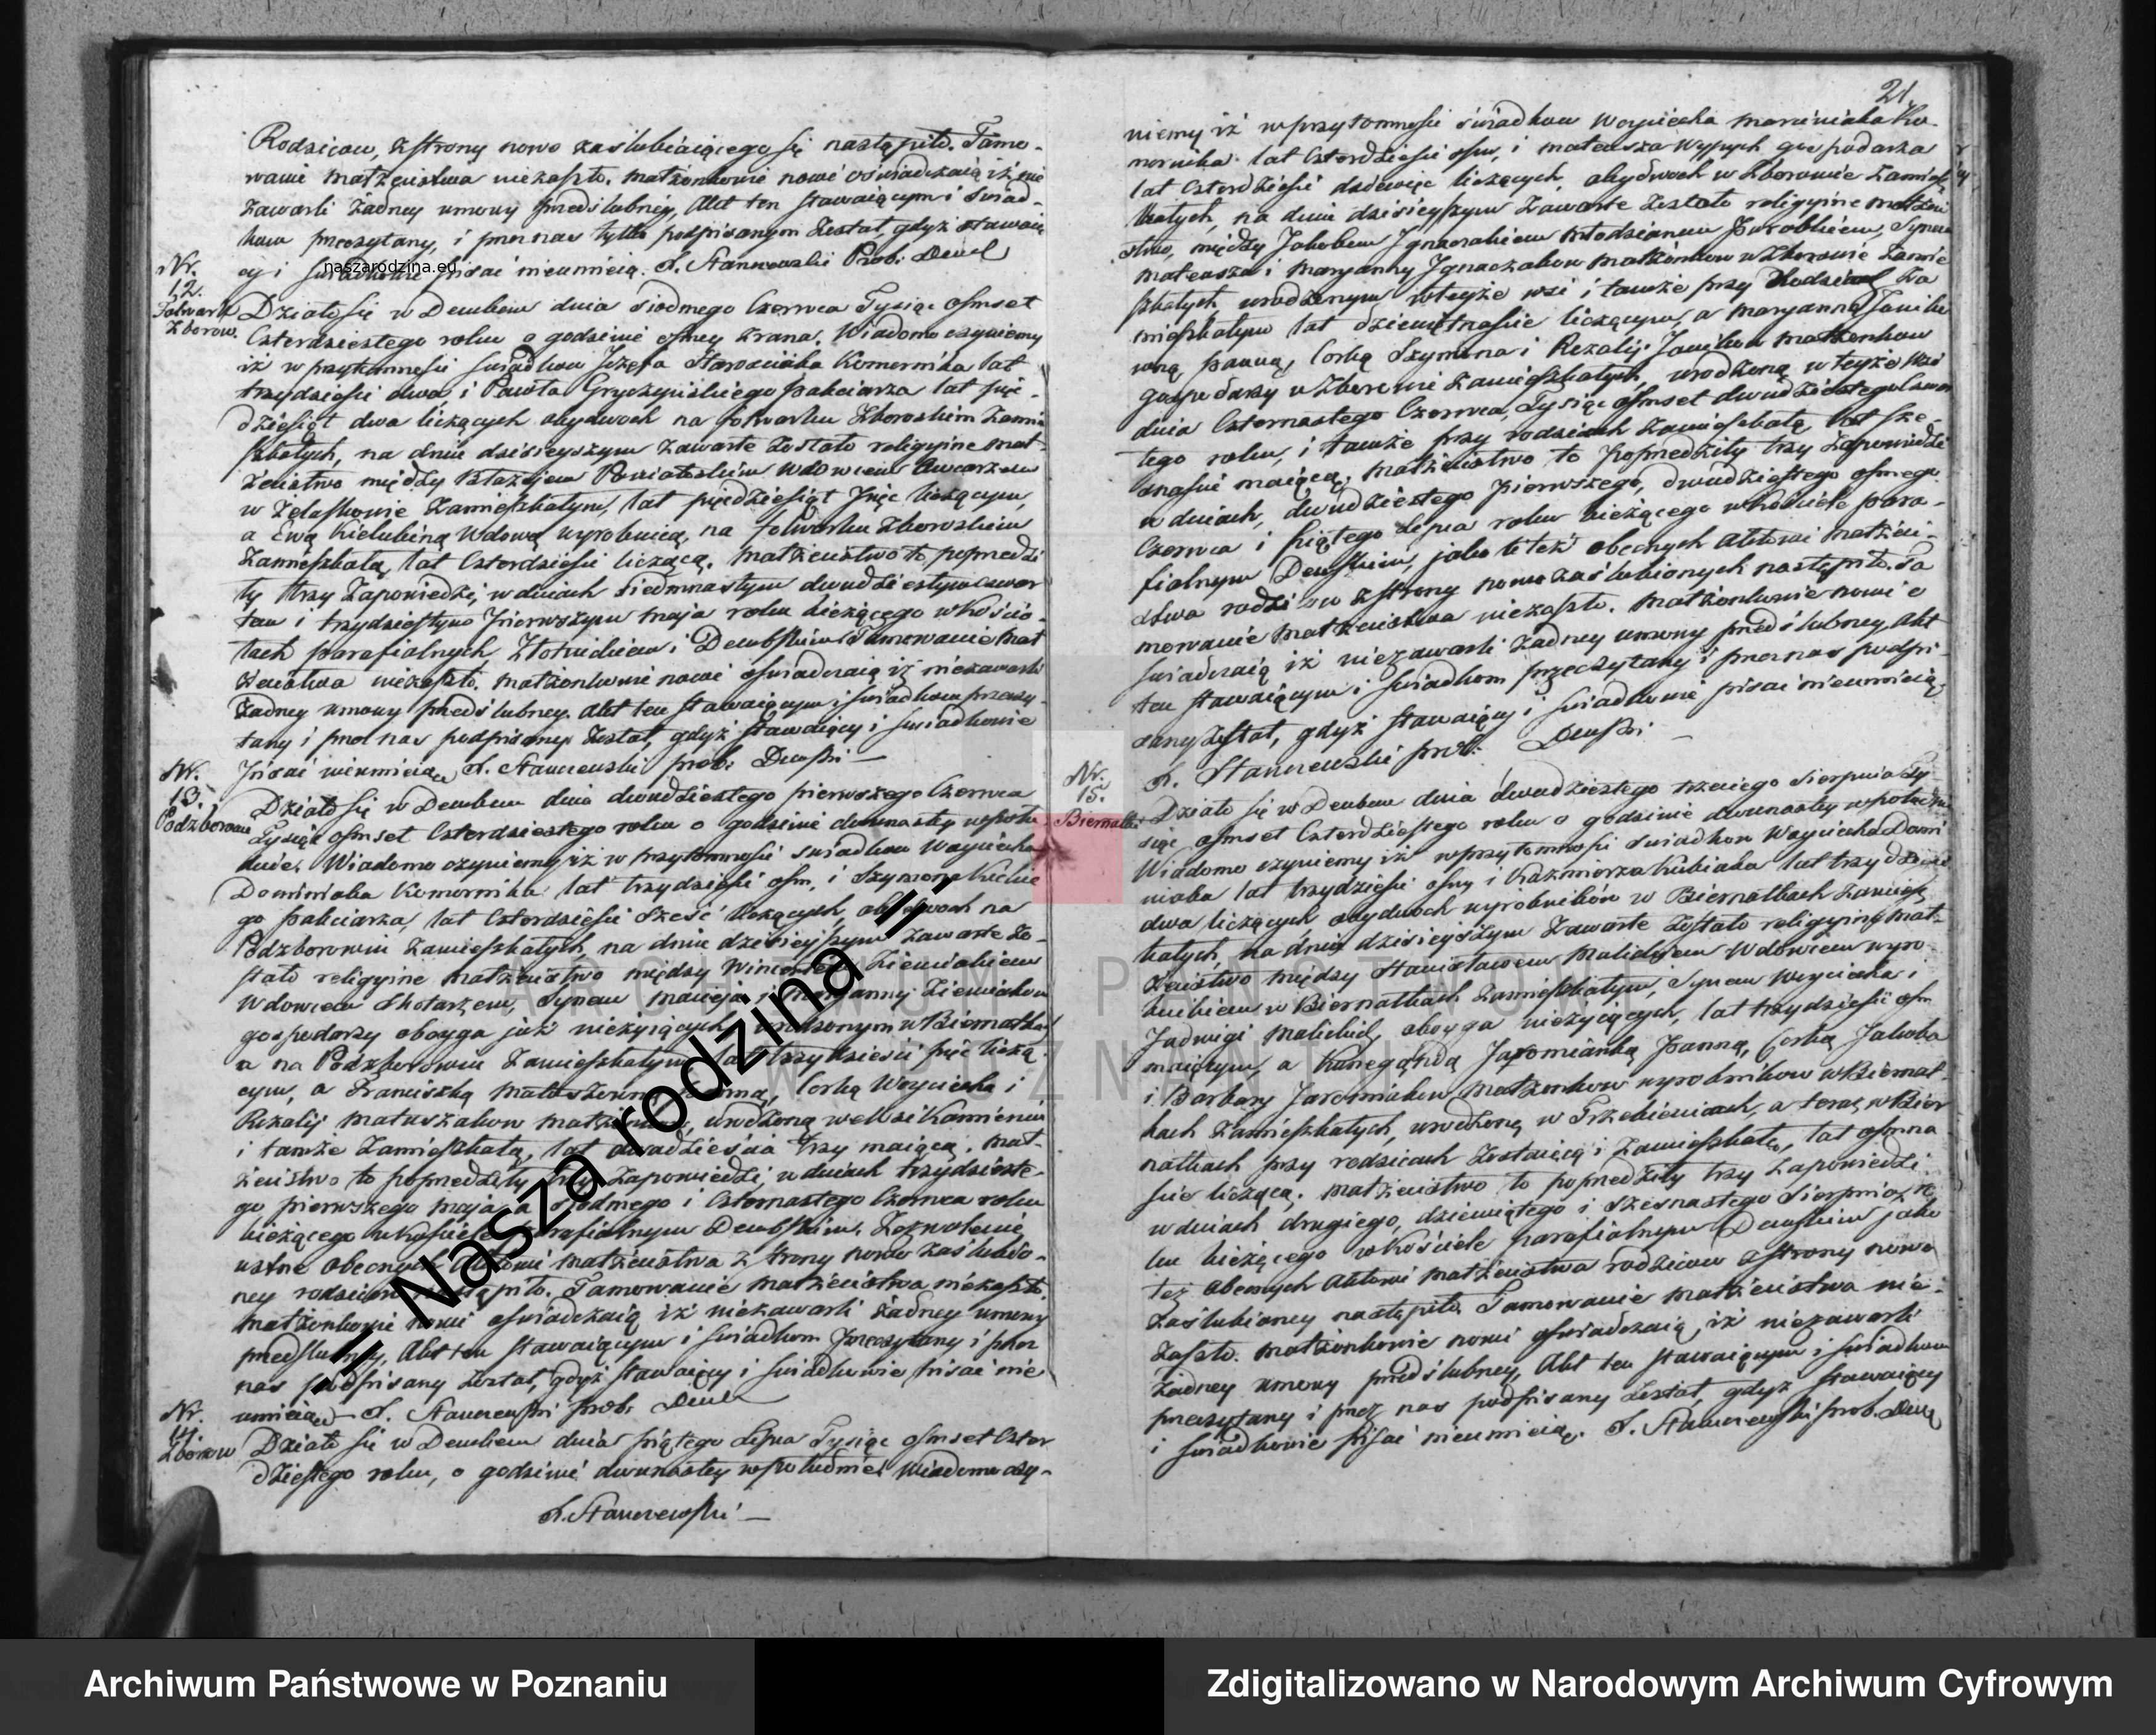 Rodzicow, z strony nowo zaslubiaiącego się nastąpiło. Tamo-
wanie Małżeństwa niezaszło. Małżonkowie nowi oświadczaią iż nie
zawarli żadney umowy przedślubnéy, Akt ten stawaiącym i świad-
kom przeczytany, i przez nas tylko podpisanym został, gdyż stawaią
cy i świadkowie pisać nieumieią. S. Stanczewski Prob:
naszarodzina.eu
Nr.
12.
Folwark
Zborow.
Działo się w Dembem dnia siodmego Czerwca Tysiąc osmset
Czterdziestego roku o godzinie osmey zrana. Wiadomo czyniemy
iż w przytomności świadkow Józefa Komornika lat
trzydzieści dwa, i Pawła Gryczyńskiego pakciarza lat pięć-
dziesiąt dwa liczących obydwoch na folwarku Zboroskim zamie
szkałych, na dniu dzisieyszym zawarte zostało religyine mał-
żeństwo między Błażejem Wdowcem Owczarzem
w Żelaskowie zamieszkałym, lat pięćdziesiąt pięć liczącym,
a Ewą Kielubiną Wdową wyrobnicą, na folwarku Zboroskim
zamieszkałą, lat Czterdzieści liczącą. Małżeństwo to poprzedzi
ły trzy Zapowiedzi, w dniach siedmnastym dwudziestym czwar
tem i trzydziestym pierwszym maja roku bieżącego w kościo-
łach parafialnych Złotnickim i Dembskim Tamowanie Mał
żeństwa niezaszło. Małżonkowie nowi oświadczaią iż niezawarli
żadney umowy przedślubney. Akt ten stawaiącym i świadkom przeczy-
tany i przez nas podpisany został, gdyż stawaiący i świadkowie
pisać nieumieią S. Stanczewski prob: Dembski
Nr.
13.
Podzborow
Działo się w Dembem dnia dwudziestego pierwszego Czerwca
Tysiąc osmset Czterdziestego roku o godzinie dwunastey wpołu
dnie. Wiadomo czyniemy iż w przytomności świadkow Woyciecha
Dominiaka Komornika lat trzydzieści osm, i Szymona
go pakciarza, lat Czterdzieści sześć liczących, obydwoch na
Podzborowiu zamieszkałych, na dniu dzisieyszym zawarte zo-
stało religyine małżeństwo między Wincentem Ziemiakiem
Wdowcem Skotarzem, synem Macieja i Maryanny Ziemiakow
gospodarzy oboyga już nieżyiących, urodzonym w Biernatka
a na Podzborowiu zamieszkałym lat trzydzieści pięć liczą
cym, a Franciszką Panną, Corką Woyciecha i
Rozalij Matuszakow Małżonkow, urodzoną we wsi Kamieniu
i tamże zamieszkałą, lat dwadzieścia trzy maiącą. Mał-
żeństwo to poprzedziły trzy Zapowiedzi, w dniach trzydzieste-
go pierwszego maja, siodmego i Czternastego Czerwca roku
bieżącego w kościele parafialnym Dembskim. Zezwolenie
ustne obecnych Aktowi małżeństwa z strony nowo zaślubio-
ney rodzicow nastąpiło. Tamowanie Małżeństwa niezaszło.
Małżonkowie nowi oświadczaią iż niezawarli żadney umowy
przedślubney, Akt ten stawaiącym i świadkom przeczytany i przez
nas podpisany został, gdyż stawaiący i świadkowie pisać nie
umieią S. Stanczewski prob:
Nr.
14.
Zborow
Działo się w Dembem dnia piątego Lipca Tysiąc osmset Czter
dziestego roku, o godzinie dwunastey wpołudnie. Wiadomo czy-
S. Stanczewski
21.
niemy iż w przytomności świadkow Woyciecha Marciniaka Ko-
mornika lat Czterdzieści osm, i Mateusza Wypych gospodarza
lat Czterdzieści dziewięć liczących, obydwoch w Zborowie zamiesz
kałych, na dniu dzisieyszym zawarte zostało religyine małżeń
stwo, między Jakubem Ignaczakiem Młodzianem Parobkiem, Synem
Mateusza i Maryanny Ignaczakow Małżonkow w Zborowie zamie
szkałych urodzonym wteyże wsi i tamże przy Rodzicach za
mieszkałym lat dziewiętnaście liczącym, a Maryanną Janiko
wną, panną, Corką Szymona i Rozalij Janikow Małżonkow
gospodarzy w Zborowie zamieszkałych, urodzoną wteyże wsi
dnia Czternastego Czerwca, Tysiąc osmset dwudziestego czwar
tego roku, i tamże przy rodzicach zamieszkałą lat sze-
snaście maiącą. Małżeństwo to poprzedziły trzy Zapowiedzi
w dniach, dwudziestego pierwszego, dwudziestego osmego
Czerwca i piątego Lipca roku bieżącego wkościele para-
fialnym Dembskim, jako też obecnych Aktowi Małżeń-
stwa rodzicow z strony nowozaślubionych nastąpiło. Ta
mowanie Małżeństwa niezaszło. Małżonkowie nowi o
świadczaią iż niezawarli żadney umowy przedślubney, Akt
ten stawaiącym i świadkom przeczytany i przez nas podpi-
sany został, gdyż stawaiący i świadkowie pisać nieumieią.
S. Stanczewski prob: Dembski
Nr.
15.
Biernatki
Działo się w Dembem dnia dwudziestego trzeciego Sierpnia Ty-
siąc osmset Czterdziestego roku o godzinie dwunastey wpołudnie
Wiadomo czyniemy iż wprzytomności świadkow Woyciecha Domi
niaka lat trzydzieści osm i Kazmierza Kubiaka lat trzydzieści
dwa liczących obydwoch wyrobników w Biernatkach zamiesz
kałych, na dniu dzisieyszym zawarte zostało religyine mał-
żeństwo między Stanisławem Malickim Wdowcem wyro
bnikiem w Biernatkach zamieszkałym, Synem Woyciecha i
Jadwigi Malickich oboyga nieżyiących, lat trzydzieści osm
maiącym, a Kunegundą Panną, Corką Jakoba
i Barbary Małżonkow wyrobnikow w Biernat-
kach zamieszkałych, urodzoną w Trzebienicach, a teraz w Bier
natkach przy rodzicach zostaiącą i zamieszkałą, lat osmna
ście liczącą. Małżeństwo to poprzedziły trzy Zapowiedzi
w dniach drugiego, dziewiątego i szesnastego Sierpnia, ro
ku bieżącego wkościele parafialnym Dembskim jako
też obecnych Aktowi Małżeństwa rodzicow z strony nowo
zaślubioney nastąpiło. Tamowanie małżeństwa nie-
zaszło. Małżonkowie nowi oświadczaią, iż niezawarli
żadney umowy przedślubney, Akt ten stawaiącym i świadkom
przeczytany i przez nas podpisany został, gdyż stawaiący
i świadkowie pisać nieumieią. S. Stanczewski prob.
.:: Nasza rodzina ::.
ARCHIWUM PAŃSTWOWE
W POZNANIU
Archiwum Państwowe w Poznaniu
Zdigitalizowano w Narodowym Archiwum Cyfrowym